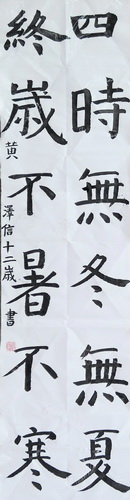 四時無冬無夏
終歲不暑不寒
黄澤信十二歲書